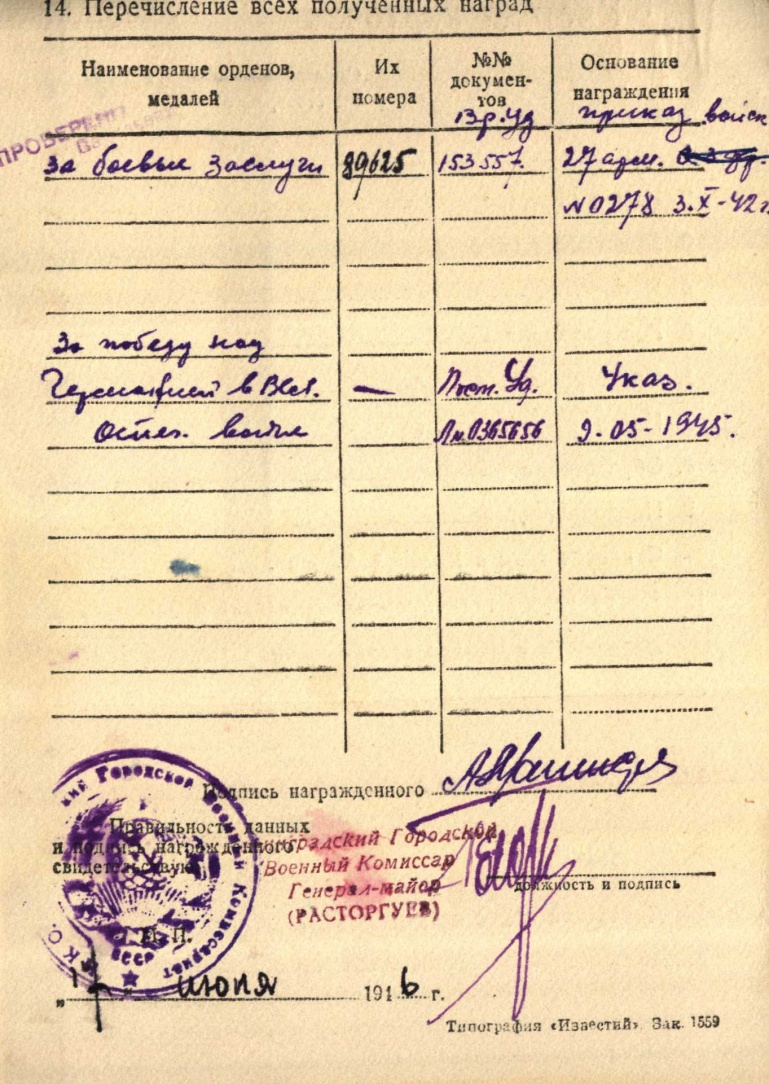 14. Перечисление всех полученных наград
Наименование орденов, медалей
Их номера
№№ документов
Основание награждения
Вр. уд
приказ войск
ПРОВЕРЕНО
За боевые заслуги 89625 153557 27 арм.
№0278 3.X-42г
За победу над
Германией в Вел. — Пост. Уд. Указ.
Отеч. войне Лм 0365656 9-05-1945.
Подпись награжденного
Правильность данных
и подпись награжденного
свидетельствую
Городской
Военный Комиссар
Генерал-майор
(РАСТОРГУЕВ)
должность и подпись
М. П.
Городской Военный Комиссариат
СССР
июня 1946 г.
Типография «Известий». Зак. 1559